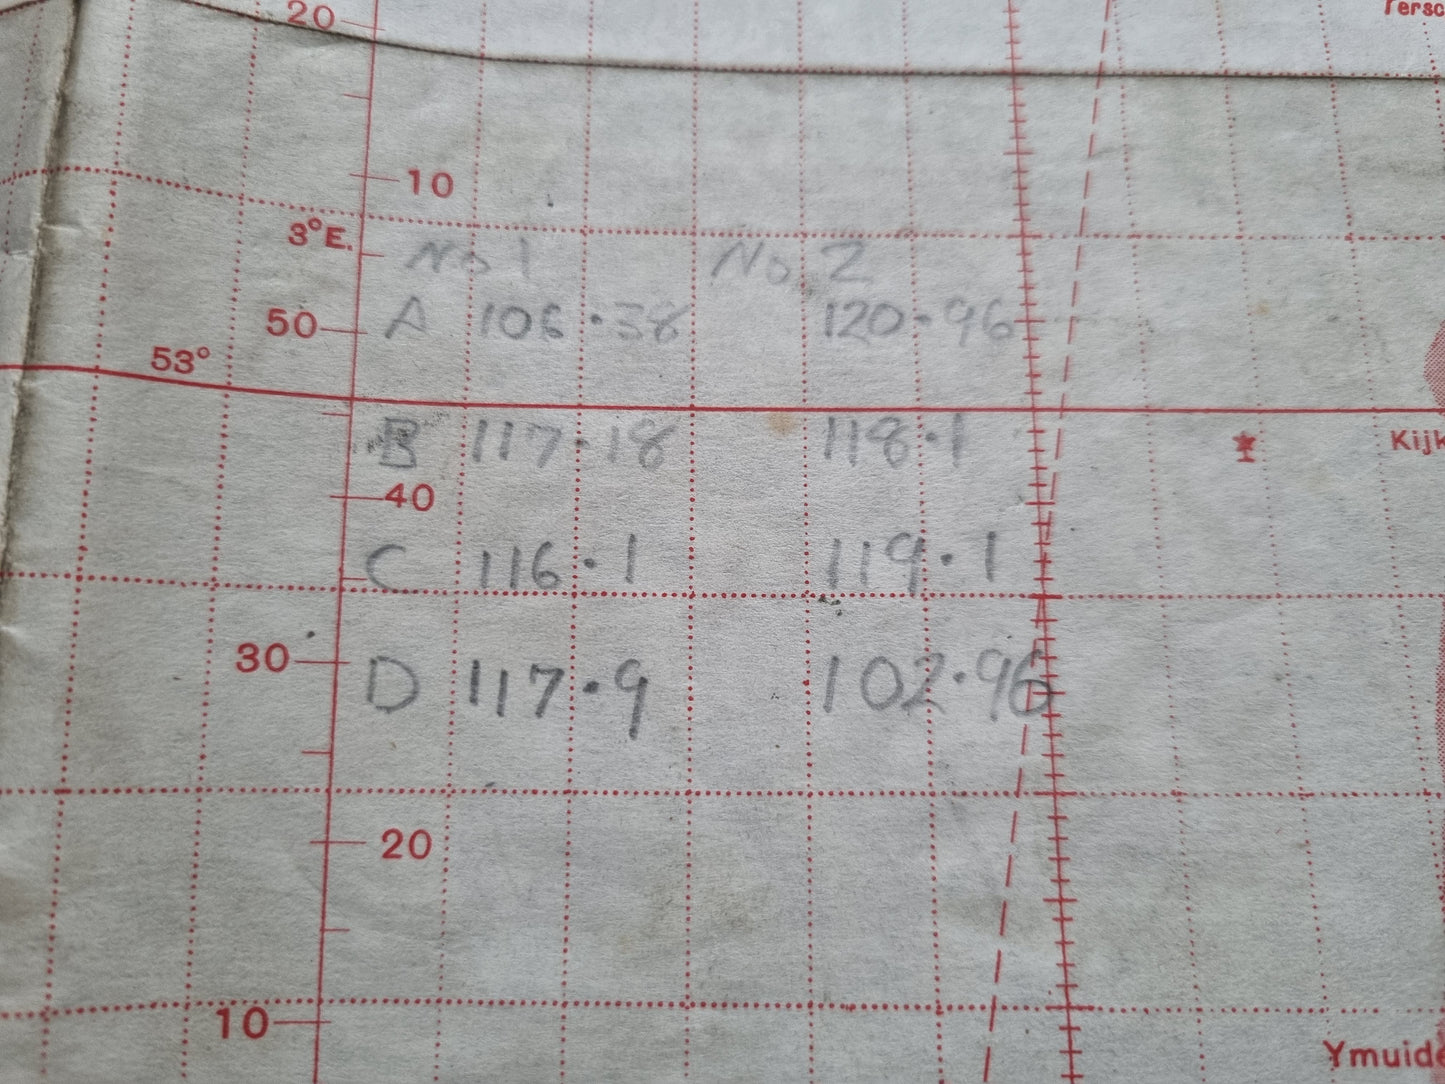 Tersc
20
10
3°E.
No 1 No. 2
A 106.38 120.96
50
53°
B 117.18 118.1
Kijk
40
C 116.1 119.1
30
D 117.9 102.96
20
10
Ymuide